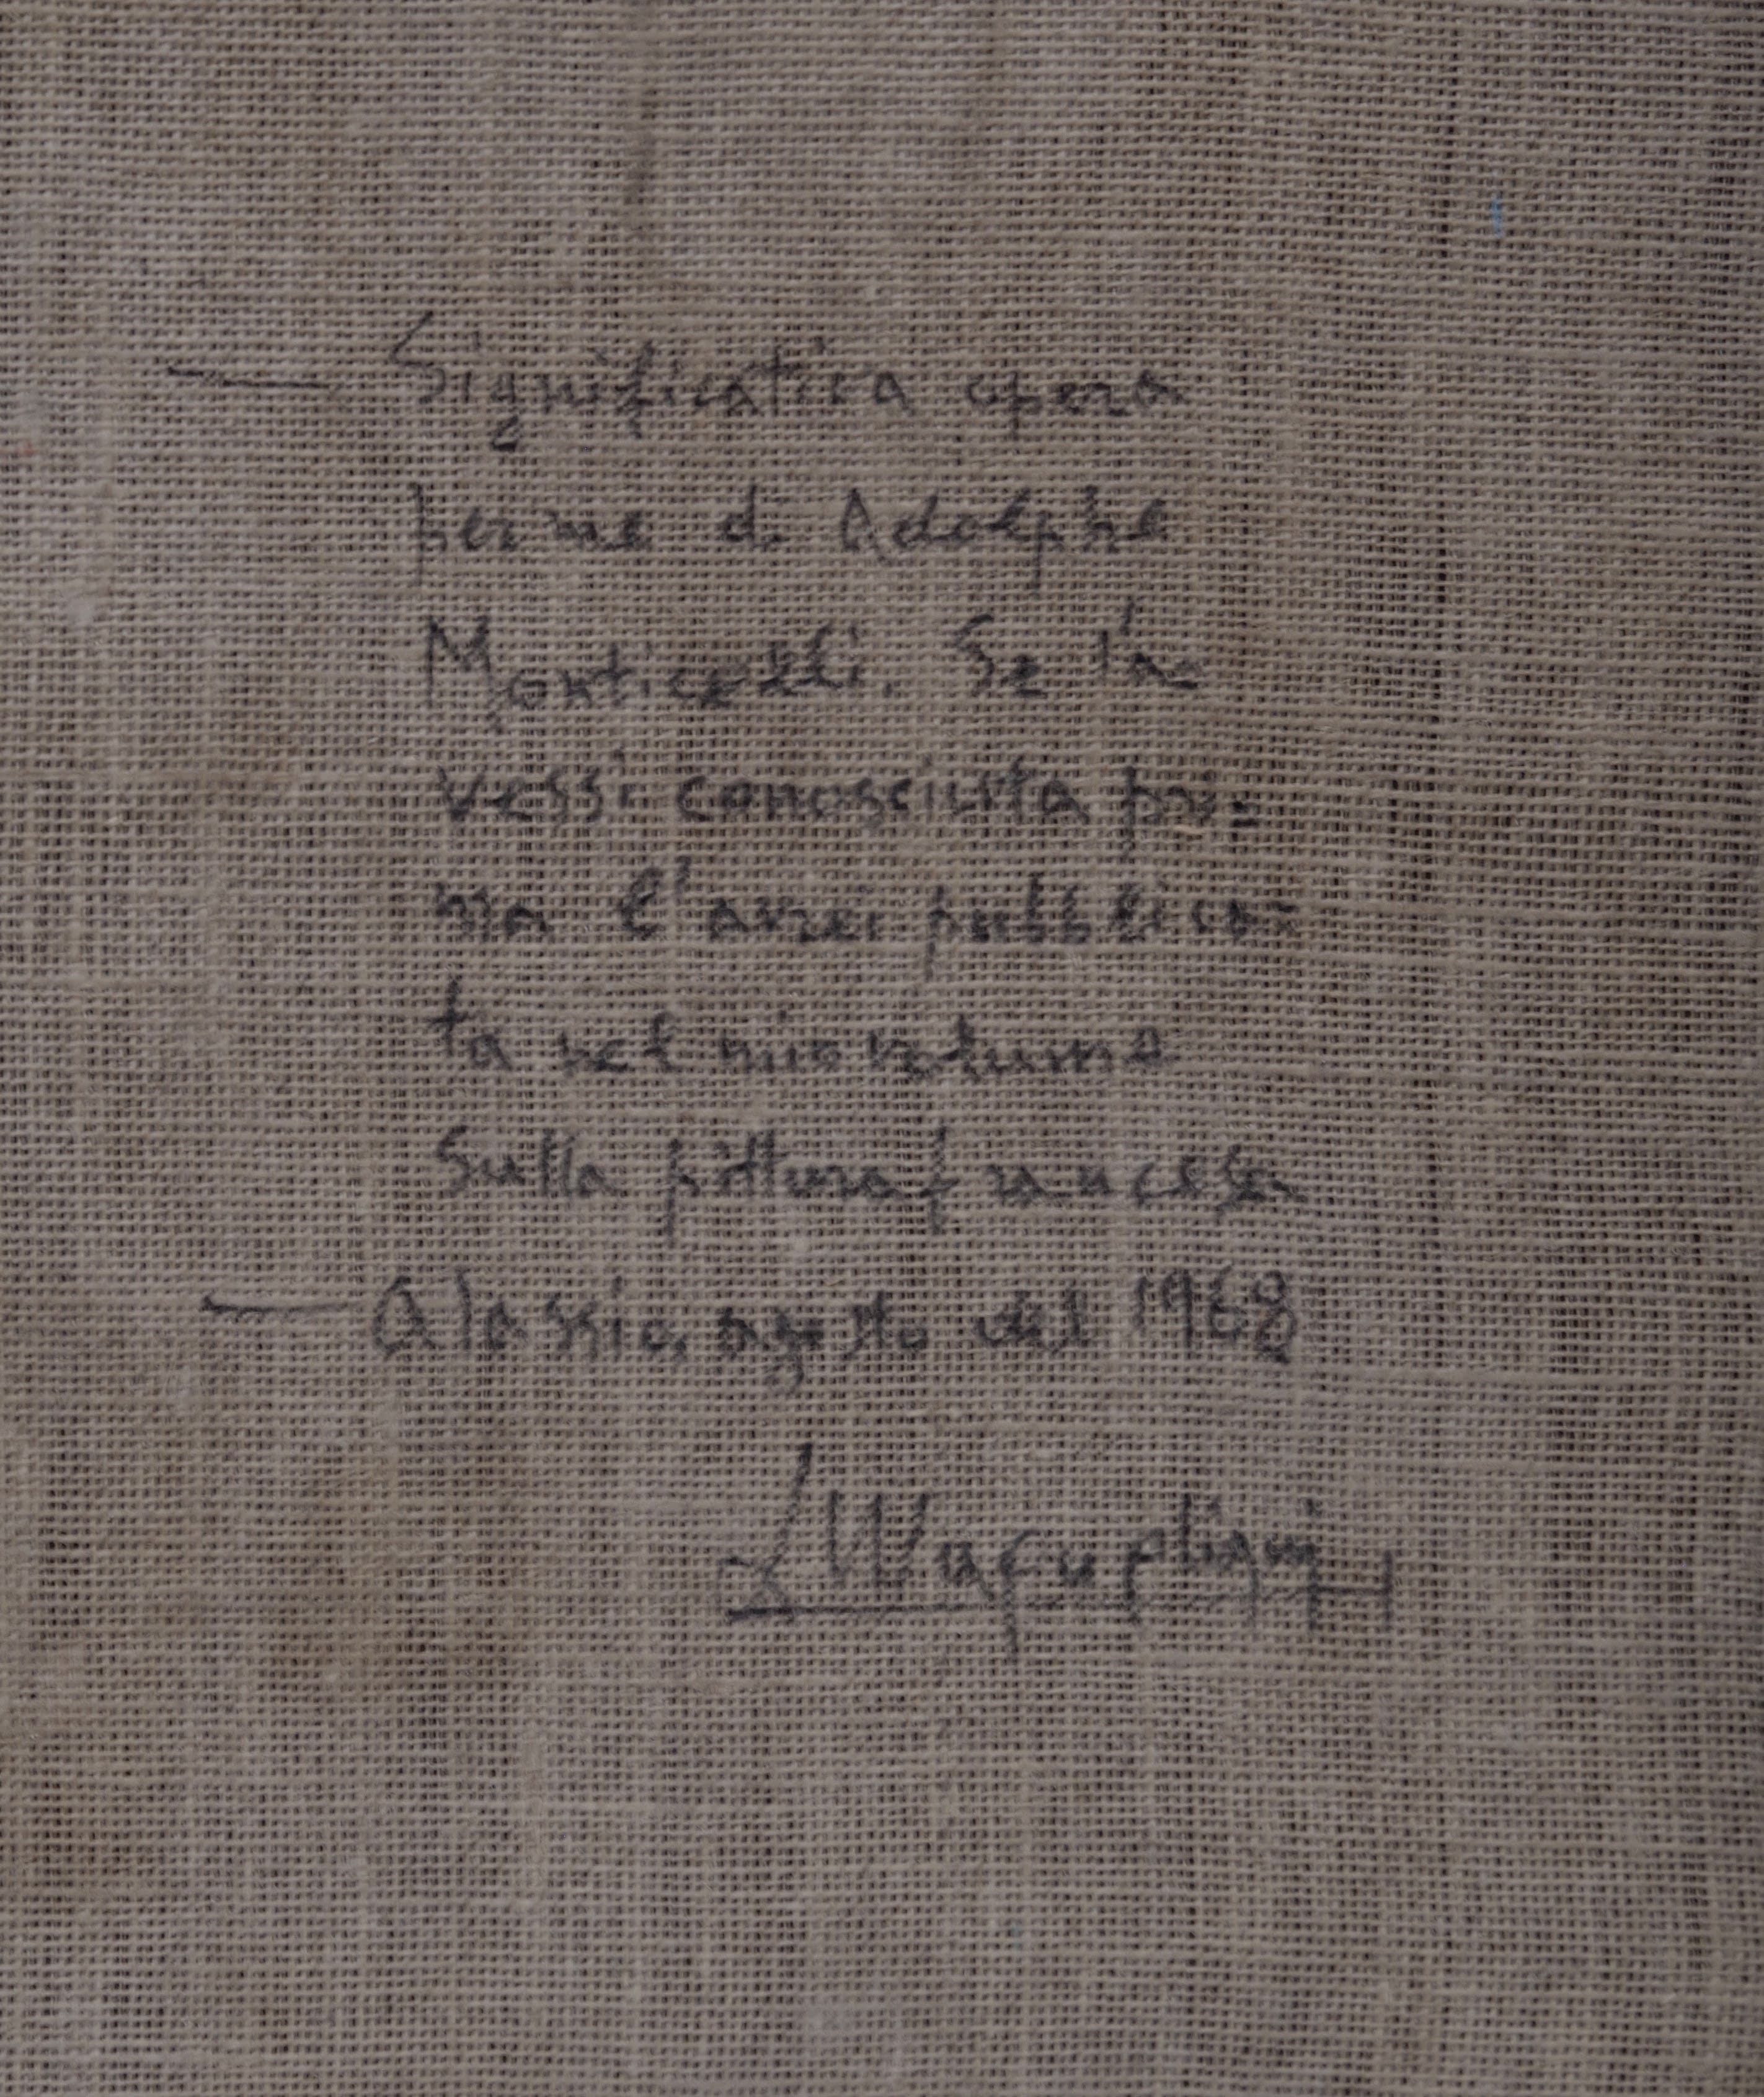 — Significativa opera
per me di Adolphe
Monticelli. Se l'a=
vessi conosciuta pri=
ma l'avrei pubblica=
ta nel mio volume
sulla pittura francese
— Alassio, agosto del 1968